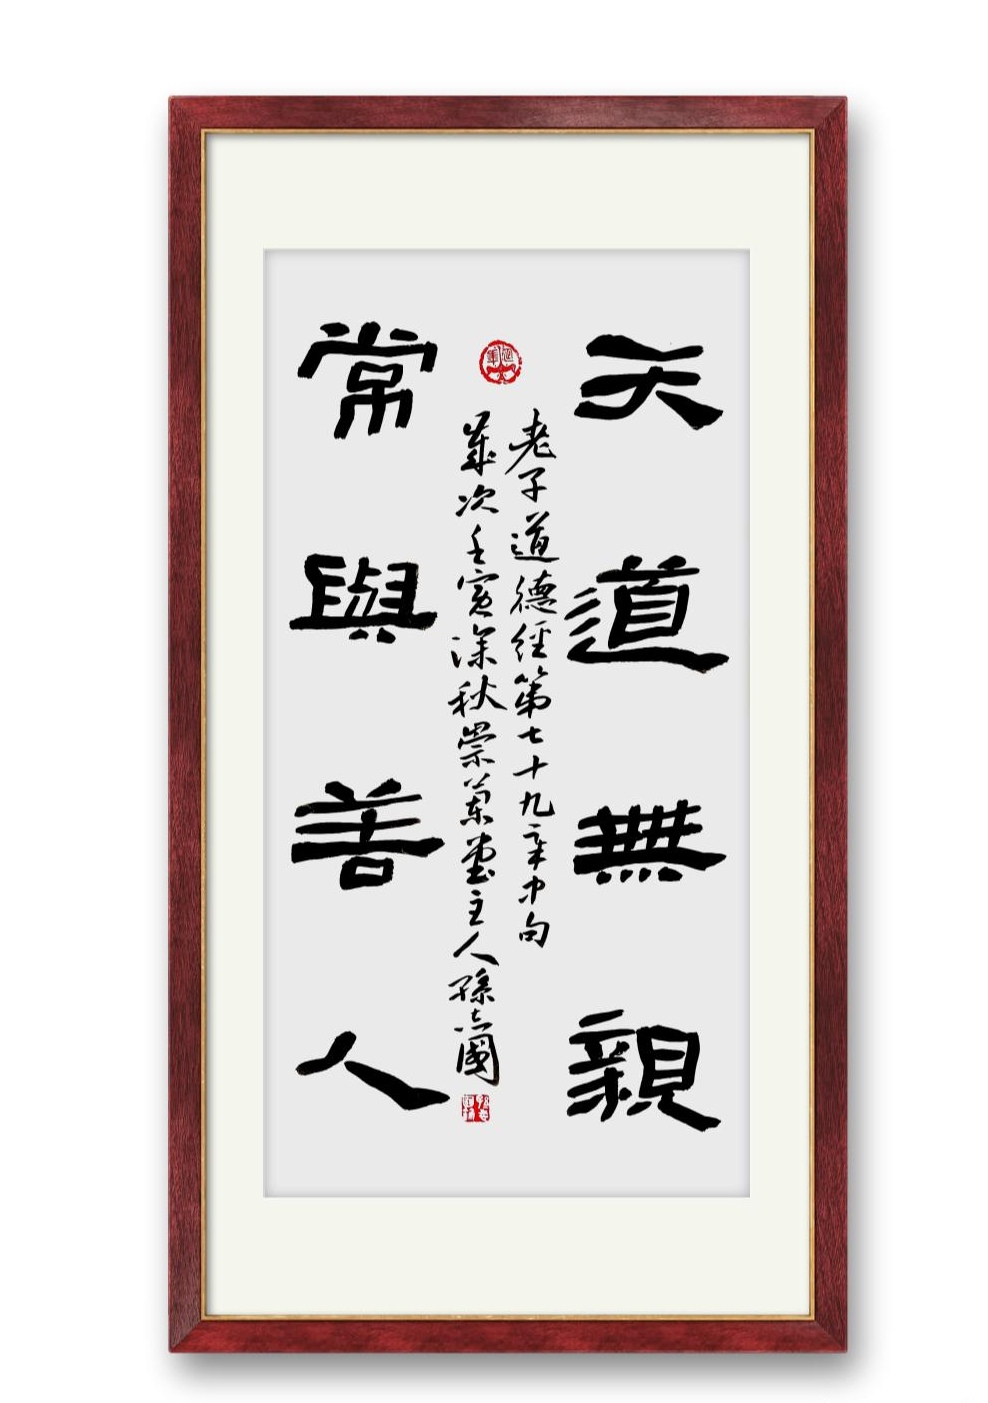 天道無親
老子道德經第七十九章中句
歲次壬寅深秋崇蘭堂主人孫志國
常與善人